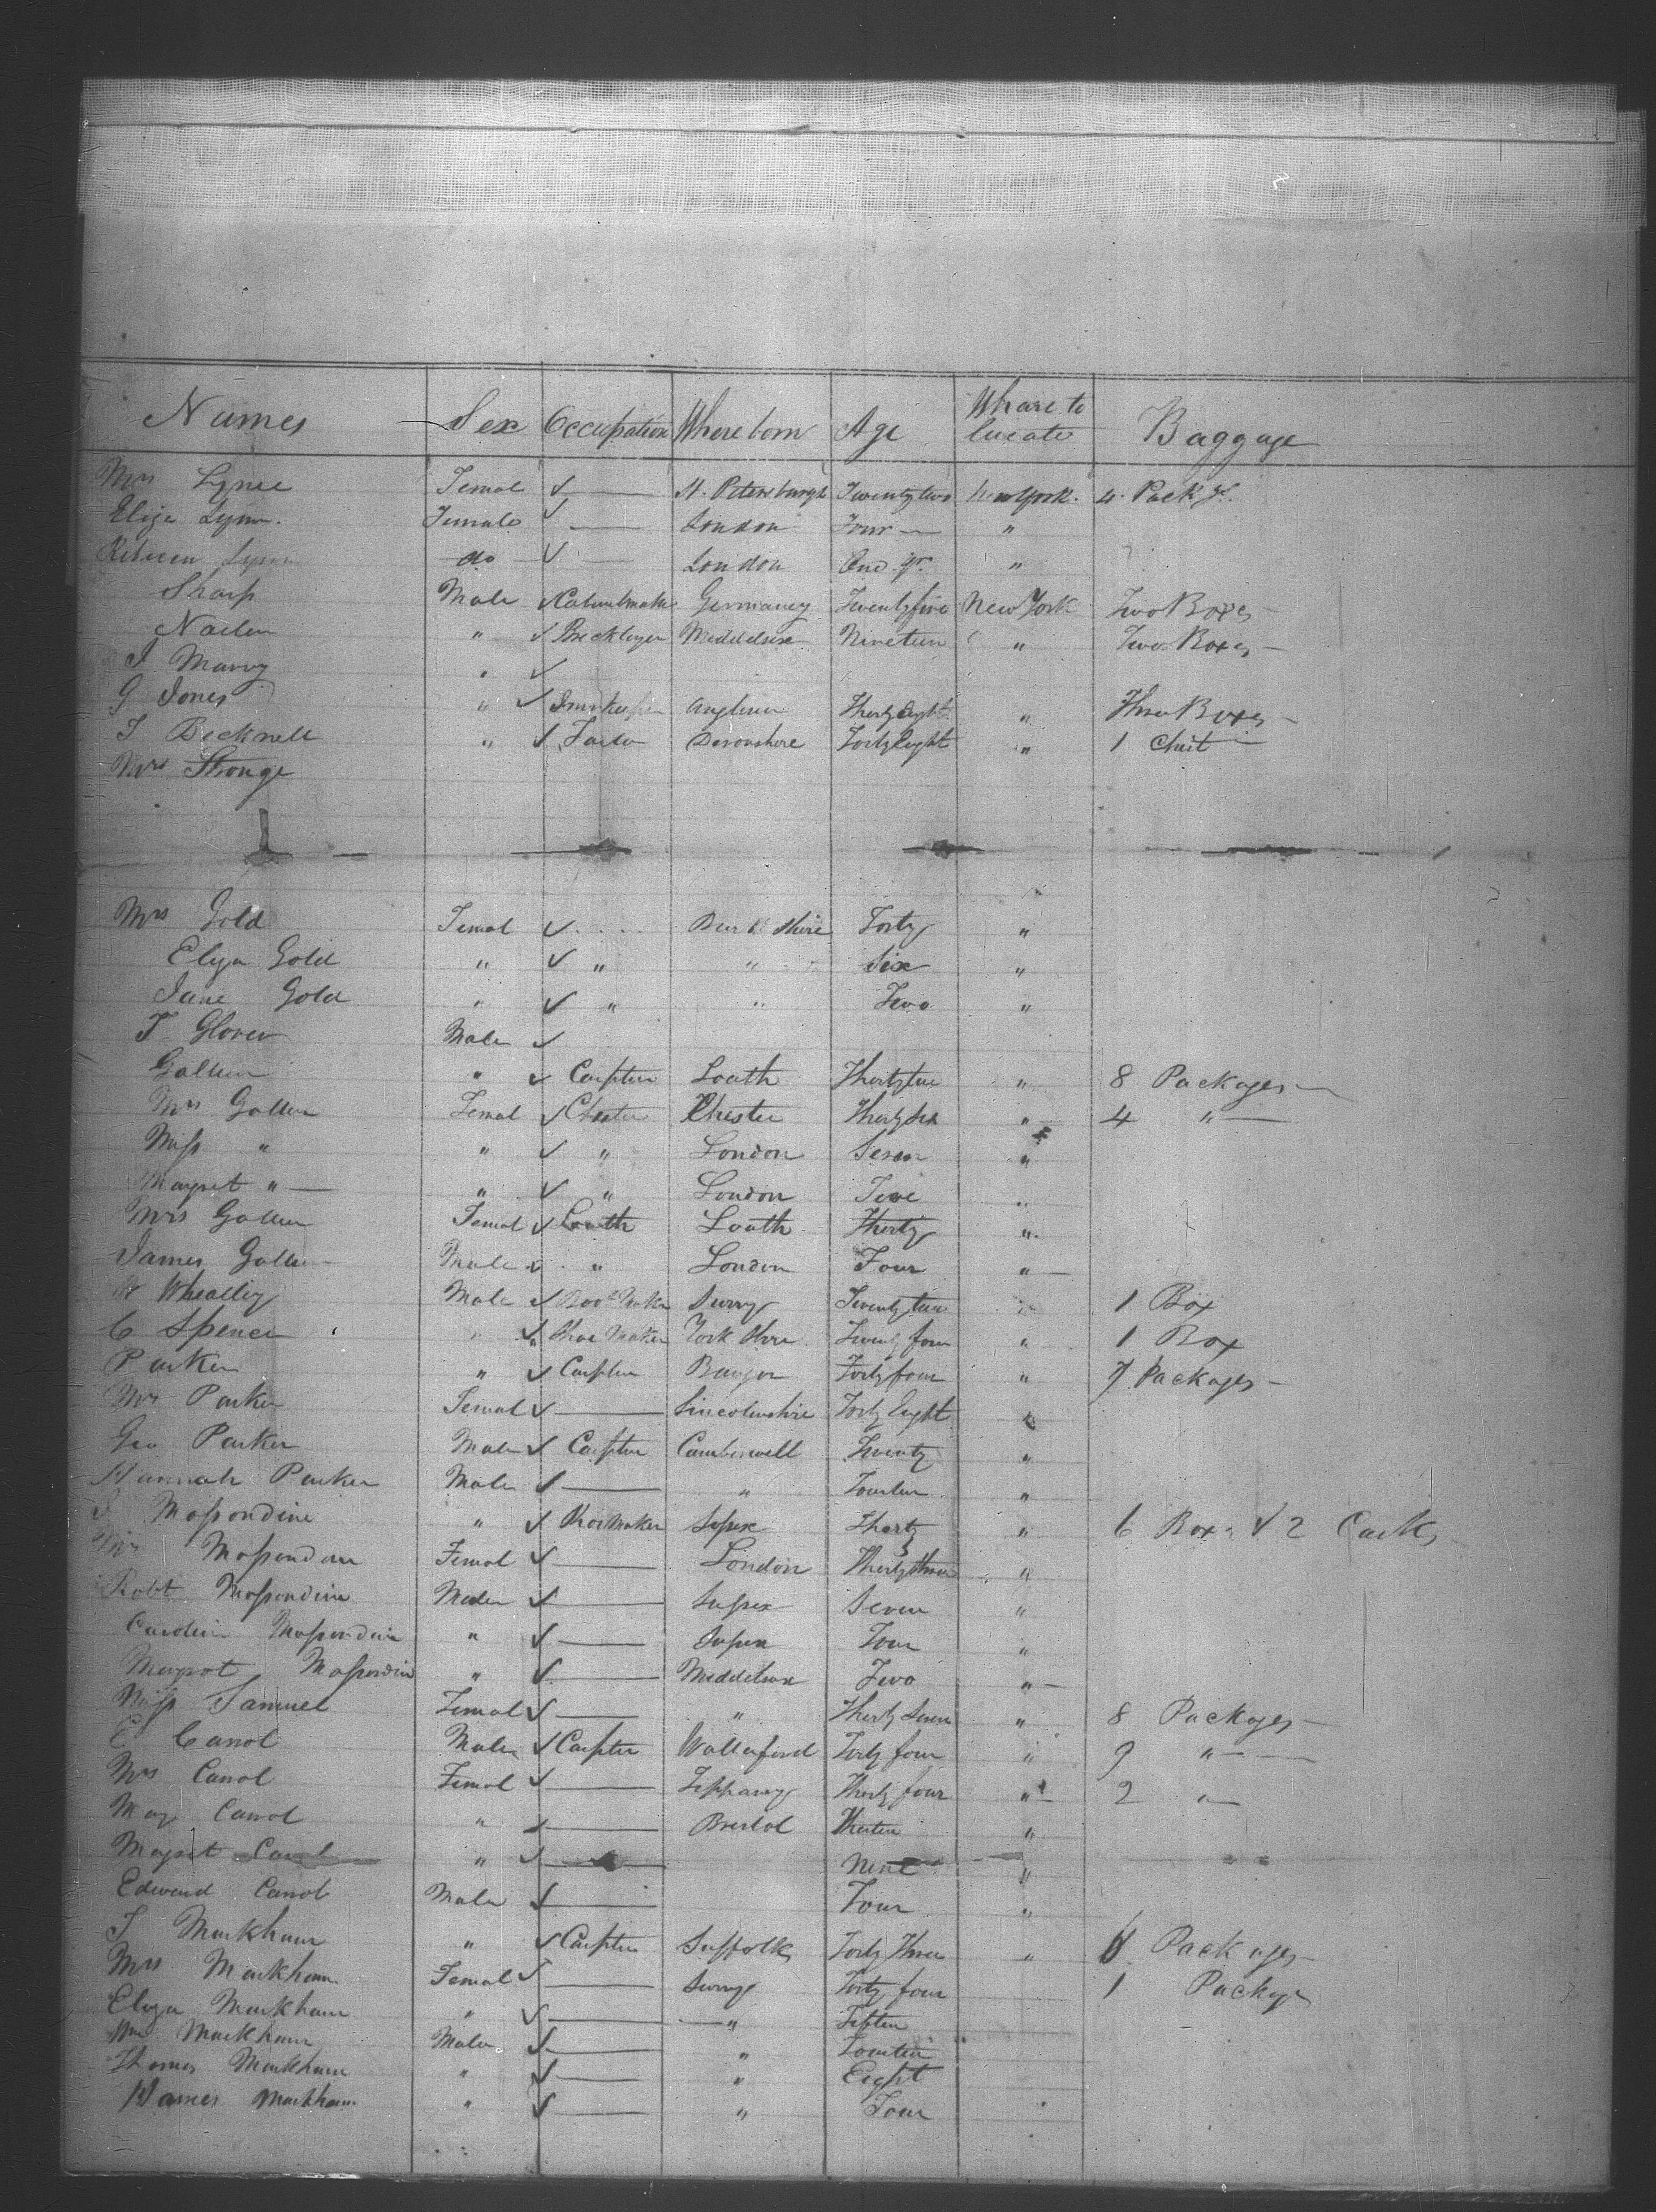 Names Sex Occupation Where born Age Whare to locate Baggage
Mrs Lynee Femal ✓ — St. Petersburgh Twentytwo New York. 4 Pack
Eliza Lynn. Female ✓ — London Four — "
Lynn do ✓ — London One yr. "
Sharp Male ✓ Germaney Twentyfive New York Two Boxes —
Naclen " ✓ Middelsex Nineteen " Two Boxes —
J Marvy " ✓
G Jones " ✓ Thertyeight " Three Boxes —
J Becknell " ✓ Devonshere Fortyeight " 1 Chest —
Mrs Stronge
Mrs Gold Femal ✓ shire Forty "
Eliza Gold " ✓ " " Six "
Jane Gold " ✓ " " Two "
T Glover Male ✓
Gallur " ✓ Carpter Louth " 8 Packages —
Mrs Gallur Femal ✓ Chester Chester Thertysix " 4 " —
Miss " " ✓ " London Seven "
Margret " — " ✓ " London "
Mrs Gallur Femal ✓ Louth Louth Therty "
James Gallur Male ✓ " London Four "
Wheatley Male ✓ Boot Maker Surry " 1 Box
C Spencer " ✓ Shoe Maker York Shire Twenty four " 1 Box
Parker " ✓ Carpter Bangor Fortyfour " 7 Packages —
Mrs Parker Femal ✓ — Lincolnshire Forty eight "
Geo Parker Male ✓ Carpter Camberwell Twenty "
Hannah Parker Male ✓ — " Fourteen "
Massondine " ✓ Shoemaker Sussex Therty " 6 Boxes & 2 Casks
Mrs Massondine Femal ✓ — London Thertythree "
Robt Massondine Male ✓ — Sussex Seven "
Massondine " ✓ — Sussex Four "
Margrot Massondine " ✓ — Middelsex Two "
Miss Samuel Femal ✓ — " Therty Seven " 8 Packages —
C Carrol Male ✓ Carpter Wallerford Forty four " 9 " —
Mrs Carrol Femal ✓ — Tepparry Therty four " 2 "
May Carrol " ✓ — Bristol Therteen "
Magret Carrol " ✓ — Nine "
Edward Carrol Male ✓ — Four "
J Markham " ✓ Carpter Suffolk Forty Three " Packages
Mrs Markham Femal ✓ — Surry Forty four 1 Package
Eliza Markham " ✓ — " Fifteen
Wm Markham Male ✓ — " Fourteen
Thomas Markham " ✓ — " Eight
James Markham " ✓ — " Four